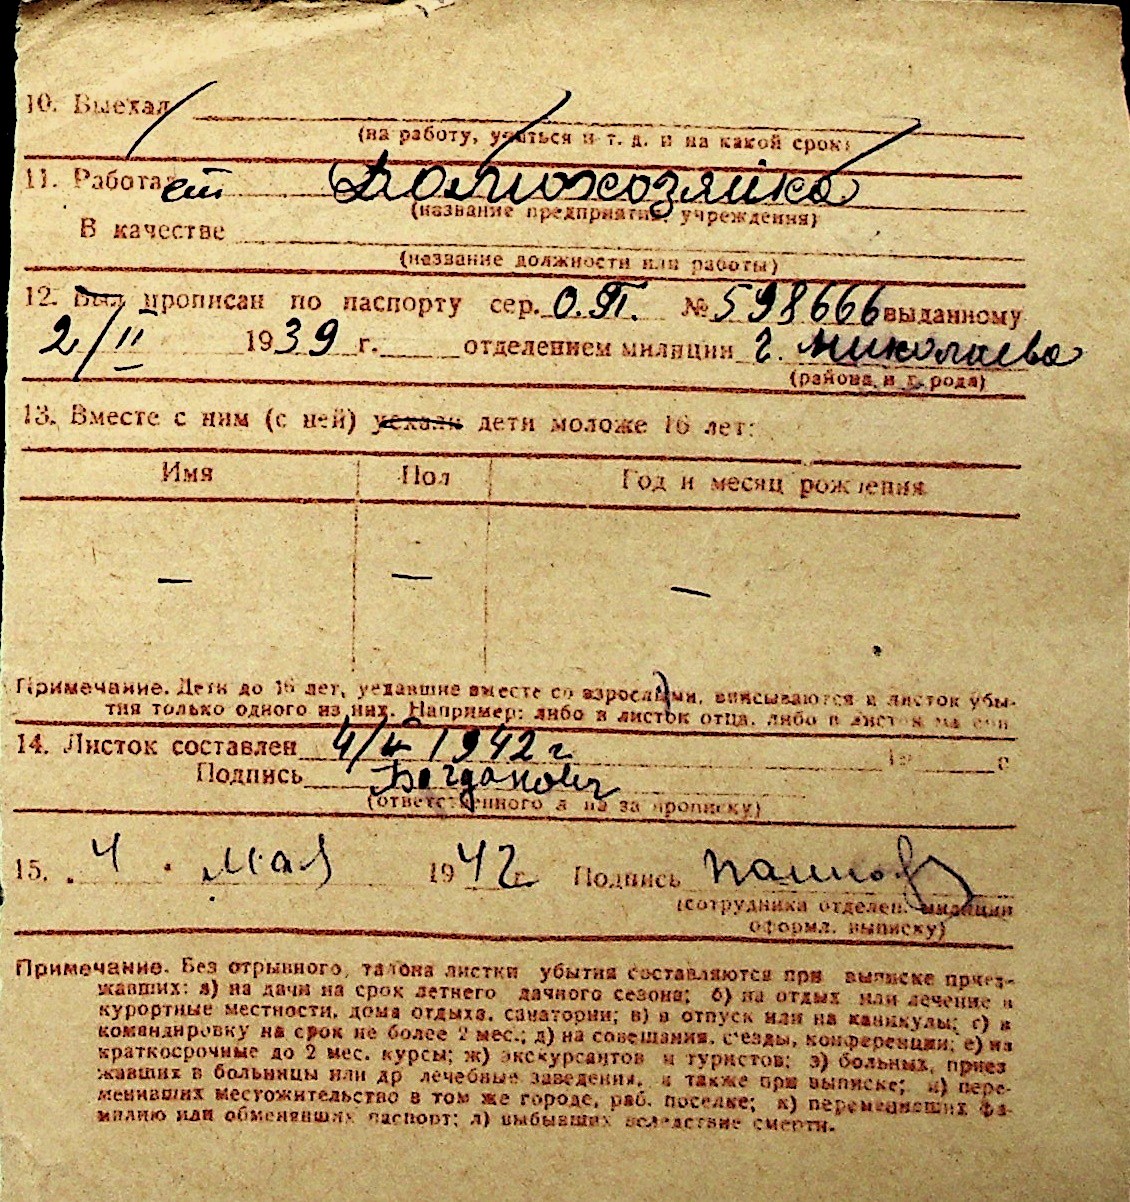 10. Выехал
(на работу, учиться и т. д. и на какой срок)
11. Работает Домохозяйка
(название предприятия, учреждения)
В качестве
(название должности или работы)
12. Был прописан по паспорту сер. О.П. № 598666 выданному
2/II 1939 г. отделением милиции г. Николаева
(района и города)
13. Вместе с ним (с ней) уехали дети моложе 16 лет:
Имя Пол Год и месяц рождения
— — —
Примечание. Дети до 16 лет, уехавшие вместе со взрослыми, вписываются в листок убы-
тия только одного из них. Например: либо в листок отца, либо в листок матери
14. Листок составлен 4/V 1942 г 19 г
Подпись Богданович
(ответственного за прописку)
15. „4" мая 1942 г. Подпись
(сотрудника отделен. милиции
оформл. выписку)
Примечание. Без отрывного талона листки убытия составляются при выписке приез-
жавших: а) на дачи на срок летнего дачного сезона; б) на отдых или лечение в
курортные местности, дома отдыха, санатории; в) в отпуск или на каникулы; г) в
командировку на срок не более 2 мес.; д) на совещания, с'езды, конференции; е) на
краткосрочные до 2 мес. курсы; ж) экскурсантов и туристов; з) больных, приез
жавших в больницы или др лечебные заведения, а также при выписке; и) пере-
менивших местожительство в том же городе, раб. поселке; к) переменивших фа-
милию или обменявших паспорт; л) выбывших вследствие смерти.